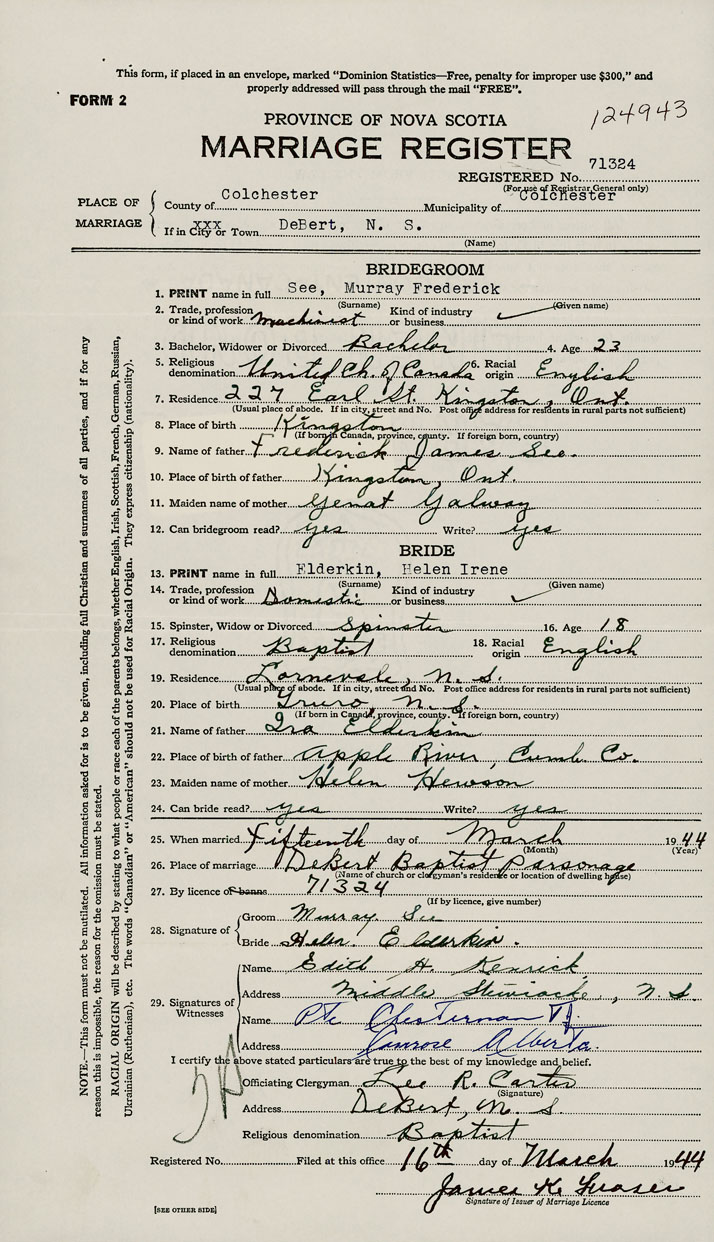 This form, if placed in an envelope, marked “Dominion Statistics—Free, penalty for improper use $300,” and
properly addressed will pass through the mail “FREE”.
FORM 2
124943
PROVINCE OF NOVA SCOTIA
MARRIAGE REGISTER
71324
REGISTERED No.
(For use of Registrar General only)
PLACE OF MARRIAGE
County of Colchester Municipality of Colchester
If in City or Town DeBert, N. S.
(Name)
BRIDEGROOM
1. PRINT name in full See, Murray Frederick
(Surname) (Given name)
2. Trade, profession or kind of work Machinist Kind of industry or business
3. Bachelor, Widower or Divorced Bachelor 4. Age 23
5. Religious denomination United Ch. of Canada 6. Racial origin English
7. Residence 227 Earl St. Kingston, Ont.
(Usual place of abode. If in city, street and No. Post office address for residents in rural parts not sufficient)
8. Place of birth Kingston
(If born in Canada, province, county. If foreign born, country)
9. Name of father Frederick James See.
10. Place of birth of father Kingston, Ont.
11. Maiden name of mother Genat Galway
12. Can bridegroom read? yes Write? yes
BRIDE
13. PRINT name in full Elderkin, Helen Irene
(Surname) (Given name)
14. Trade, profession or kind of work Domestic Kind of industry or business
15. Spinster, Widow or Divorced Spinster 16. Age 18
17. Religious denomination Baptist 18. Racial origin English
19. Residence Lornevale, N. S.
(Usual place of abode. If in city, street and No. Post office address for residents in rural parts not sufficient)
20. Place of birth Truro, N. S.
(If born in Canada, province, county. If foreign born, country)
21. Name of father Ira Elderkin
22. Place of birth of father Apple River, Cumb. Co.
23. Maiden name of mother Helen Hewson
24. Can bride read? yes Write? yes
25. When married Fifteenth day of March 1944
(Month) (Year)
26. Place of marriage DeBert Baptist Parsonage
(Name of church or clergyman's residence or location of dwelling house)
27. By licence or banns 71324
(If by licence, give number)
28. Signature of
Groom Murray See
Bride Helen Elderkin.
29. Signatures of Witnesses
Name Edith H. Kenrick
Address Middle Stewiacke, N. S.
Name Pte Chesterman
Address Alberta.
I certify the above stated particulars are true to the best of my knowledge and belief.
Officiating Clergyman Lee R. Carter
(Signature)
Address DeBert, N. S.
Religious denomination Baptist
Registered No. Filed at this office 16th day of March 1944
James K. Fraser
Signature of Issuer of Marriage Licence
[SEE OTHER SIDE]
NOTE.—This form must not be mutilated. All information asked for is to be given, including full Christian and surnames of all parties, and if for any
reason this is impossible, the reason for the omission must be stated.
RACIAL ORIGIN will be described by stating to what people or race each of the parents belongs, whether English, Irish, Scottish, French, German, Russian,
Ukrainian (Ruthenian), etc. The words “Canadian” or “American” should not be used for Racial Origin. They express citizenship (nationality).